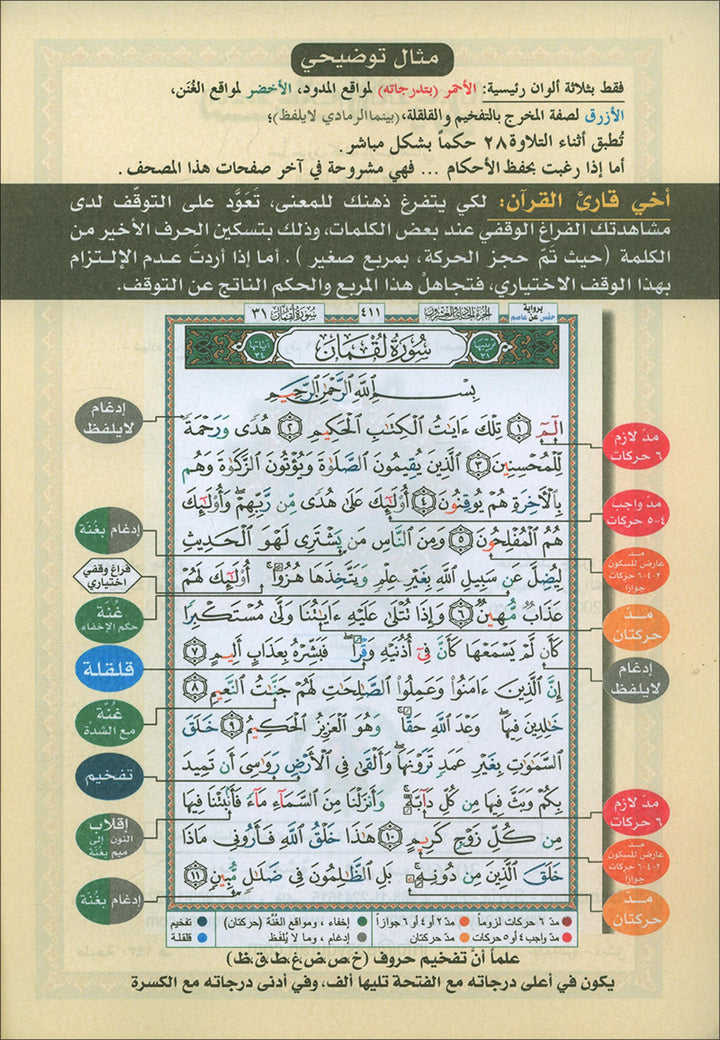 مثال توضيحي
فقط بثلاثة ألوان رئيسية: الأحمر (بتدرجاته) لمواقع المدود، الأخضر لمواقع الغُنَن،
الأزرق لصفة المخرج بالتفخيم والقلقلة، (بينما الرمادي لا يلفظ)؛
تُطبق أثناء التلاوة ٢٨ حكماً بشكل مباشر.
أما إذا رغبت بحفظ الأحكام ... فهي مشروحة في آخر صفحات هذا المصحف.
أخي قارئ القرآن: لكي يتفرغ ذهنك للمعنى، تَعَوَّد على التوقّف لدى
مشاهدتك الفراغ الوقفي عند بعض الكلمات، وذلك بتسكين الحرف الأخير من
الكلمة (حيث تمّ حجز الحركة، بمربع صغير). أما إذا أردتَ عدم الإلـتزام
بهذا الوقف الاختياري، فتجاهلْ هذا المربع والحكم الناتج عن التوقف.
برواية حفص عن عاصم
الجزء الحادي والعشرون
٤١١
سورة لقمان ٣١
ترتيبها ٣١
سُورَةُ لُقْمَان
آياتها ٣٤
بِسْمِ اللَّهِ الرَّحْمَٰنِ الرَّحِيمِ
الٓمٓ ١ تِلْكَ ءَايَٰتُ الْكِتَٰبِ الْحَكِيمِ ٢ هُدًى وَرَحْمَةً
لِّلْمُحْسِنِينَ ٣ الَّذِينَ يُقِيمُونَ الصَّلَوٰةَ وَيُؤْتُونَ الزَّكَوٰةَ وَهُم
بِالْآخِرَةِ هُمْ يُوقِنُونَ ٤ أُوْلَٰٓئِكَ عَلَىٰ هُدًى مِّن رَّبِّهِمْ ۖ وَأُوْلَٰٓئِكَ
هُمُ الْمُفْلِحُونَ ٥ وَمِنَ النَّاسِ مَن يَشْتَرِى لَهْوَ الْحَدِيثِ
لِيُضِلَّ عَن سَبِيلِ اللَّهِ بِغَيْرِ عِلْمٍ وَيَتَّخِذَهَا هُزُوًا ۚ أُوْلَٰٓئِكَ لَهُمْ
عَذَابٌ مُّهِينٌ ٦ وَإِذَا تُتْلَىٰ عَلَيْهِ ءَايَٰتُنَا وَلَّىٰ مُسْتَكْبِرًا
كَأَن لَّمْ يَسْمَعْهَا كَأَنَّ فِىٓ أُذُنَيْهِ وَقْرًا ۖ فَبَشِّرْهُ بِعَذَابٍ أَلِيمٍ ٧
إِنَّ الَّذِينَ ءَامَنُوا وَعَمِلُوا الصَّٰلِحَٰتِ لَهُمْ جَنَّٰتُ النَّعِيمِ ٨
خَٰلِدِينَ فِيهَا ۖ وَعْدَ اللَّهِ حَقًّا ۚ وَهُوَ الْعَزِيزُ الْحَكِيمُ ٩ خَلَقَ
السَّمَٰوَٰتِ بِغَيْرِ عَمَدٍ تَرَوْنَهَا ۖ وَأَلْقَىٰ فِى الْأَرْضِ رَوَٰسِىَ أَن تَمِيدَ
بِكُمْ وَبَثَّ فِيهَا مِن كُلِّ دَآبَّةٍ ۚ وَأَنزَلْنَا مِنَ السَّمَآءِ مَآءً فَأَنۢبَتْنَا فِيهَا
مِن كُلِّ زَوْجٍ كَرِيمٍ ١٠ هَٰذَا خَلْقُ اللَّهِ فَأَرُونِى مَاذَا
خَلَقَ الَّذِينَ مِن دُونِهِ ۚ بَلِ الظَّٰلِمُونَ فِى ضَلَٰلٍ مُّبِينٍ ١١
مدّ لازم
٦ حركات
مدّ واجب
٤-٥ حركات
مدّ
عارض للسكون
٢-٤-٦ حركات
جوازاً
مدّ
حركتان
إدغام
لايلفظ
مدّ لازم
٦ حركات
مدّ
عارض للسكون
٢-٤-٦ حركات
جوازاً
مدّ
حركتان
إدغام
لايلفظ
إدغام بغُنّة
فراغ وقفي
اختياري
غُنّة
حكم الإخفاء
قلقلة
غُنّة
مع الشدّة
تفخيم
إقلاب
النون إلى
ميم بغُنّة
إدغام بغُنّة
مدّ ٦ حركات لزوماً
مدّ ٢ أو ٤ أو ٦ جوازاً
إخفاء، ومواقع الغُنّة (حركتان)
تفخيم
مدّ واجب ٤ أو ٥ حركات
مدّ حركتان
إدغام، وما لا يُلفَظ
قلقلة
علماً أنّ تفخيم حروف (خ،ص،ض،غ،ط،ق،ظ)
يكون في أعلى درجاته مع الفتحة تليها ألف، وفي أدنى درجاته مع الكسرة